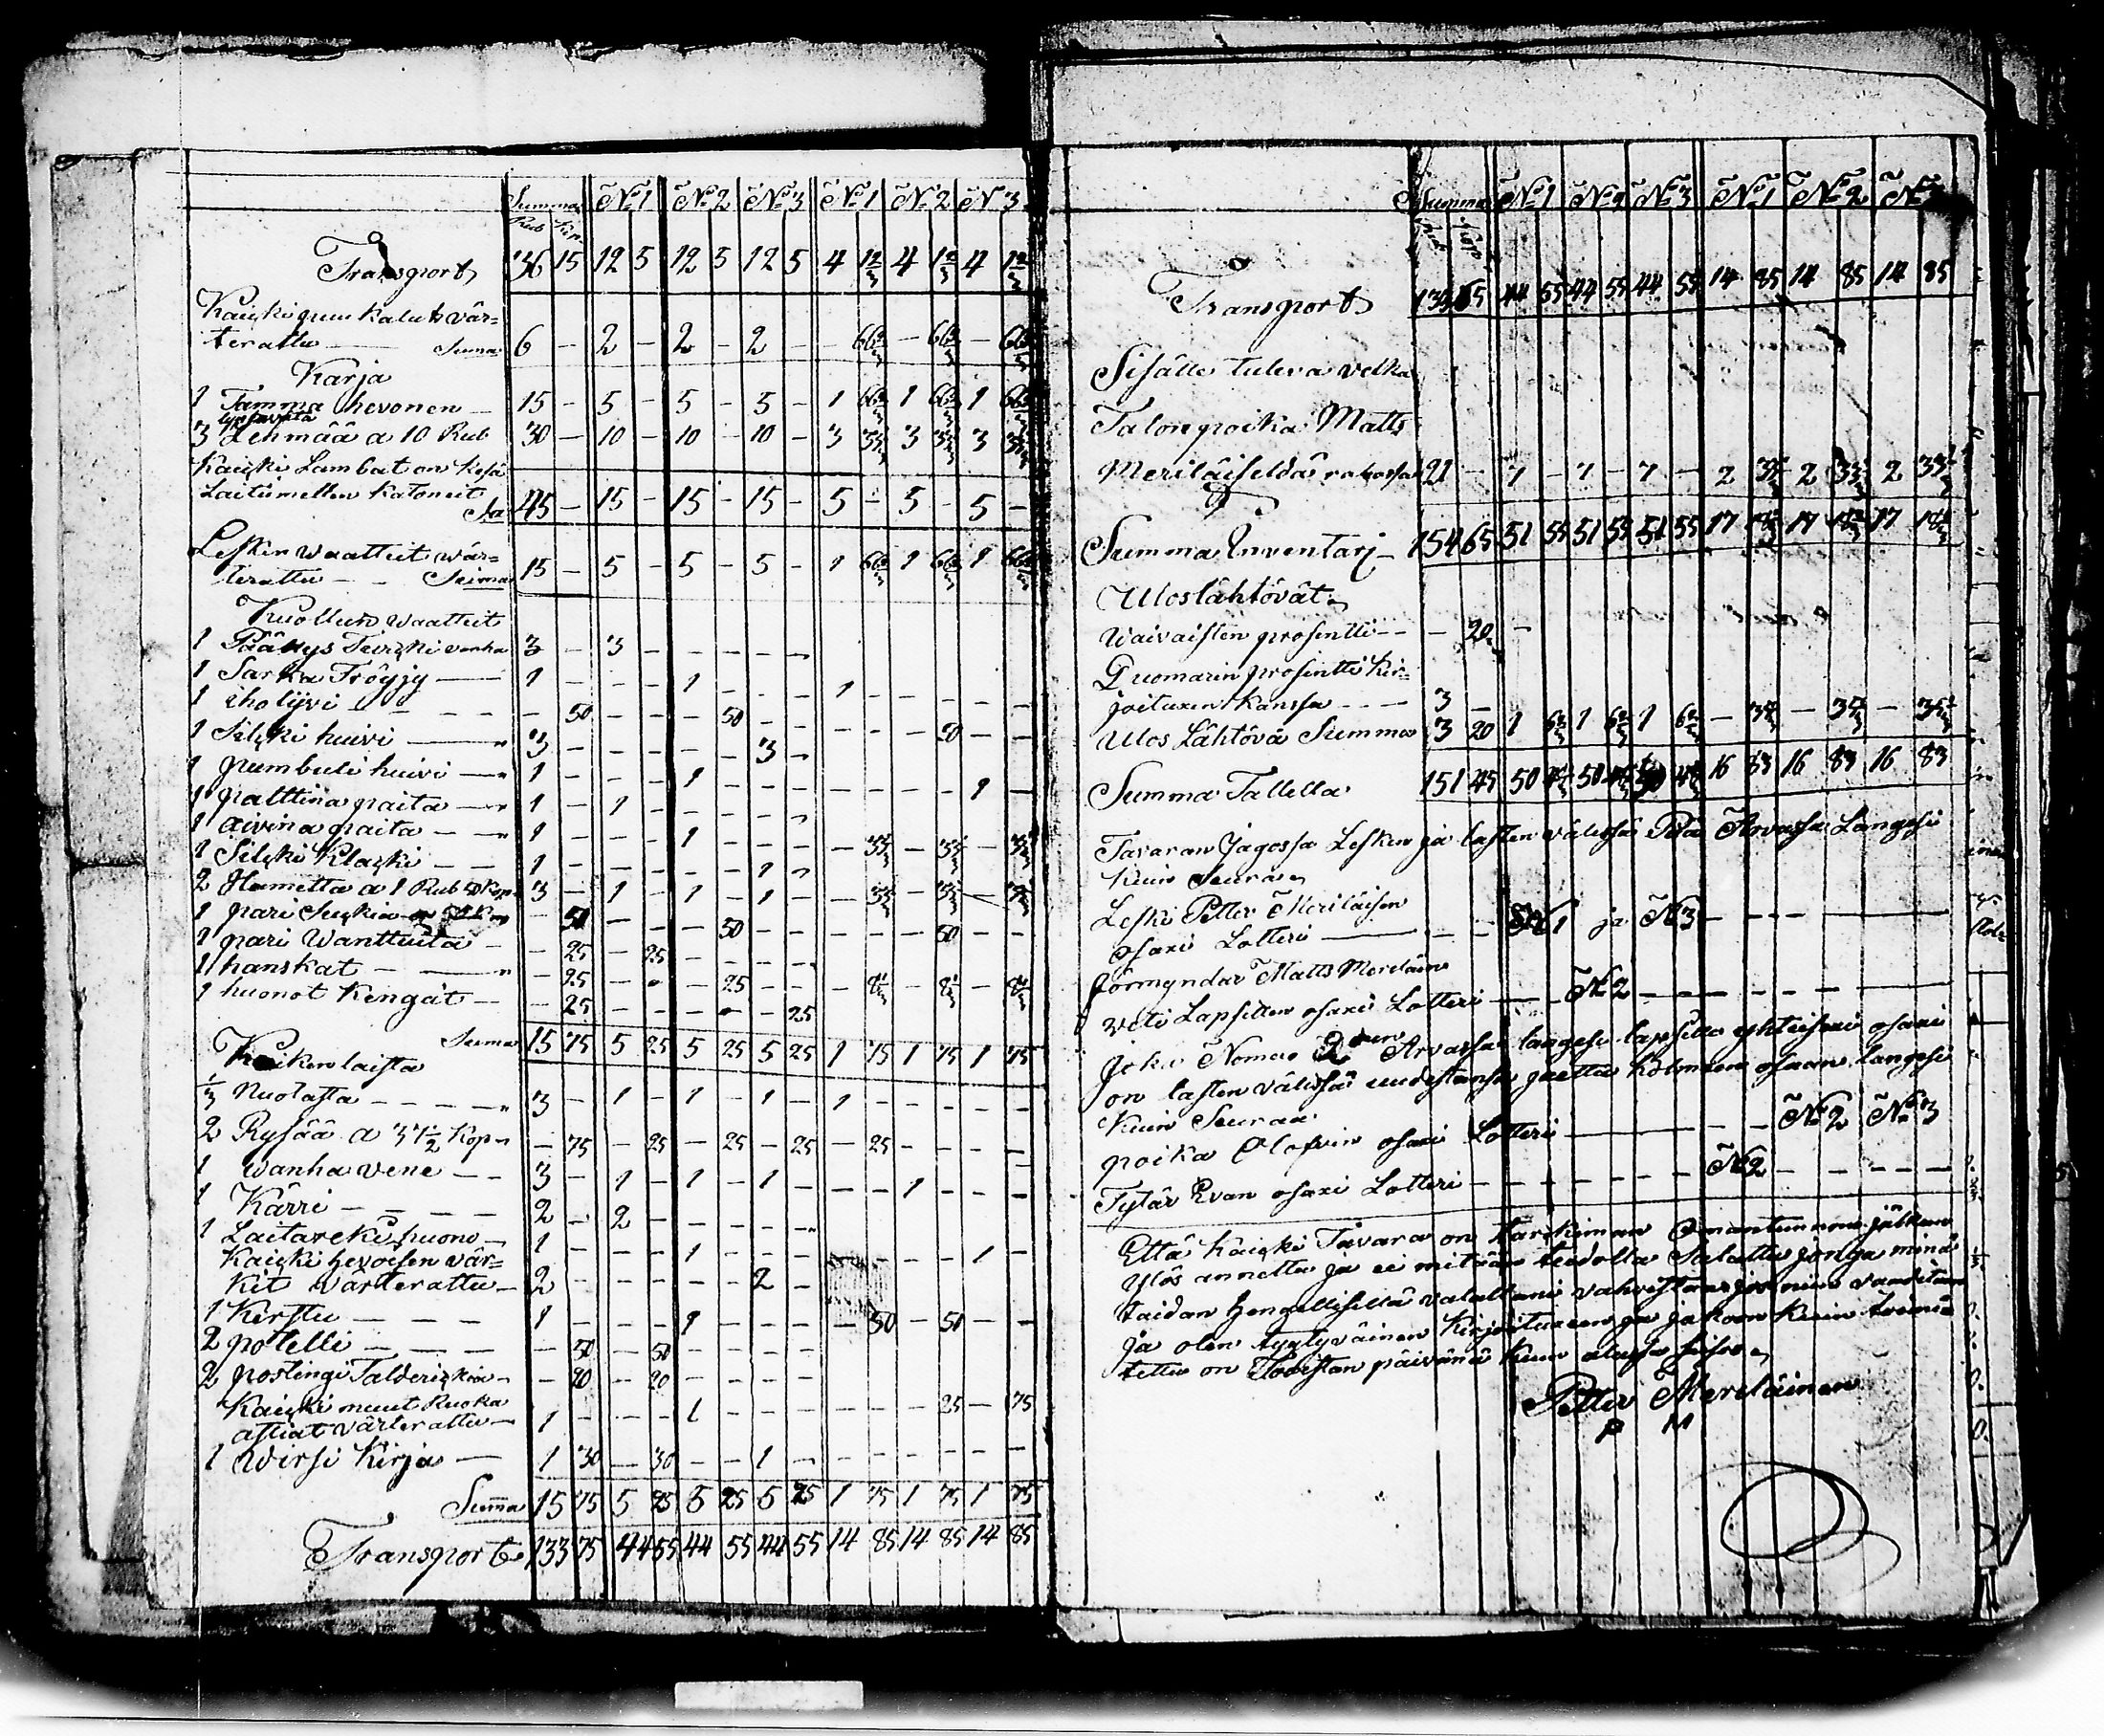 Summa N:o 1 N:o 2 N:o 3 N:o 1 N:o 2 N:o 3
Rub Kop
Transport 36 15 12 5 12 5 12 5 4 1 2/3 4 1 2/3 4 1 2/3
Kaicki puu kalut wär=
terattu — Suma 6 — 2 — 2 — 2 — — 66 2/3 — 66 2/3 — 66 2/3
Karja
1 Tamma hevonen — 15 — 5 — 5 — 5 — 1 66 2/3 1 66 2/3 1 66 2/3
lypsävätä
3 Lehmää a 10 Rub 30 — 10 — 10 — 10 — 3 33 1/3 3 33 1/3 3 33 1/3
Kaicki Lambat on kesä
Laitumellen Katoneit
Sa 45 — 15 — 15 — 15 — 5 — 5 — 5 —
Lesken waatteit wär=
terattu — — Suma 15 — 5 — 5 — 5 — 1 66 2/3 1 66 2/3 1 66 2/3
Kuollun waatteit
1 Päälys Turcki vanha 3 — 3 — — — —
1 Sarka Tröyjy — 1 — — — 1 — — — 1 — — — — —
1 iho lijvi — — — — 50 — — — 50 — — — — — 50 — —
1 Silcki huivi — 3 — — — — — 3 —
1 pumbuli huivi — 1 — — — 1 — — — — — — — 1 —
1 palttina paita — 1 — 1 — — — — —
1 aivina paita — 1 — — — 1 — — — — 33 1/3 — 33 1/3 — 33 1/3
1 Silcki Klacki — — 1 — — — — — 1 —
2 Hametta a 1 Rub 50 Kop 3 — 1 — 1 — 1 — — 33 1/3 — 33 1/3 — 33 1/3
1 pari Suckia — 50 — — — 50 — — — — — 50 — —
1 pari Wanttuita — — 25 — 25 — — — —
1 hanskat — — — 25 — — — 25 — — — 8 1/3 — 8 1/3 — 8 1/3
1 huonot Kengät — — 25 — — — — — 25
Suma 15 75 5 25 5 25 5 25 1 75 1 75 1 75
Kaikenlaista
1/3 Nuotasta — — — — 3 — 1 — 1 — 1 — 1 — — — — —
2 Rysää a 37 1/2 Kop — 75 — 25 — 25 — 25 — 25 — — — —
1 wanha vene — — 3 — 1 — 1 — 1 — — — 1 — — —
1 Kärri — — — — 2 — 2 — — — — —
1 Laitareki huono — 1 — — — 1 — — — — — — — 1 —
Kaicki hevoisen vär=
kit värterattu — 2 — — — — — 2 —
1 Kirstu — — — 1 — — — 1 — — — — 50 — 50 — —
2 potelli — — — — 50 — 50 — — — —
2 postingi Taldrickia — — 20 — 20 — — — —
Kaicki muut Ruoka
astiat värterattu — 1 — — — 1 — — — — — — 25 — 75
1 wirsi Kirja — 1 30 — 30 — — 1 — — — — — — —
Suma 15 75 5 25 5 25 5 25 1 75 1 75 1 75
Transport 133 75 44 55 44 55 44 55 14 85 14 85 14 85
Summa N:o 1 N:o 2 N:o 3 N:o 1 N:o 2 N:o 3
Transport 133 65 44 55 44 55 44 55 14 85 14 85 14 85
Sisälle tuleva velka
Talonpoika Matts
Meriläiseldä rahassa 21 — 7 — 7 — 7 — 2 33 1/3 2 33 1/3 2 33 1/3
Summa Inventarj — 154 65 51 55 51 55 51 55 17 18 1/3 17 18 1/3 17 18 1/3
Uloslähtövät
Waivaisten prosentti — — — 20 —
Duomarin prosentti kir=
joituxen kanssa — — 3 —
Ulos Lähtövä Summa 3 20 1 6 2/3 1 6 2/3 1 6 2/3 — 35 — 35 — 35
Summa Tallella 151 45 50 48 1/3 50 48 1/3 50 48 1/3 16 83 16 83 16 83
Tavaran Jagossa Lesken ja lasten välissä Arvassa Langesi
kuin seura
Leski Petter Meriläisen
osaxi Lotteri — — — N:o 1 ja N:o 3 — — — — —
Förmyndar Matts Meriläine
veti Lapsitten osaxi Lotteri — — N:o 2 — — — — — — —
Joka Nomero 2 Arvassa langesi lapsille yhteisexi osaxi
on lasten välissä uudestansa jaettu Kolmeen osaan langesi
kuin Seuraa
poika Olofvin osaxi Lotteri — — — N:o 2 N:o 3
Tytär Evan osaxi Lotteri — — — — — — N:o 2 — — — — —
Että Kaicki Tavara on tarckiman Omantunnon jälken
Ylös annettu ja ei mitään tiedolla Salattu jonga minä
taidan hengellisellä valallani vahvistaa jos niin vaaditan
ja olen tyytyväinen kirjoituxeen ja jakoon kuin toimi=
tettu on Toistan päivänä kuin alussa seiso
Petter Meriläinen
P M